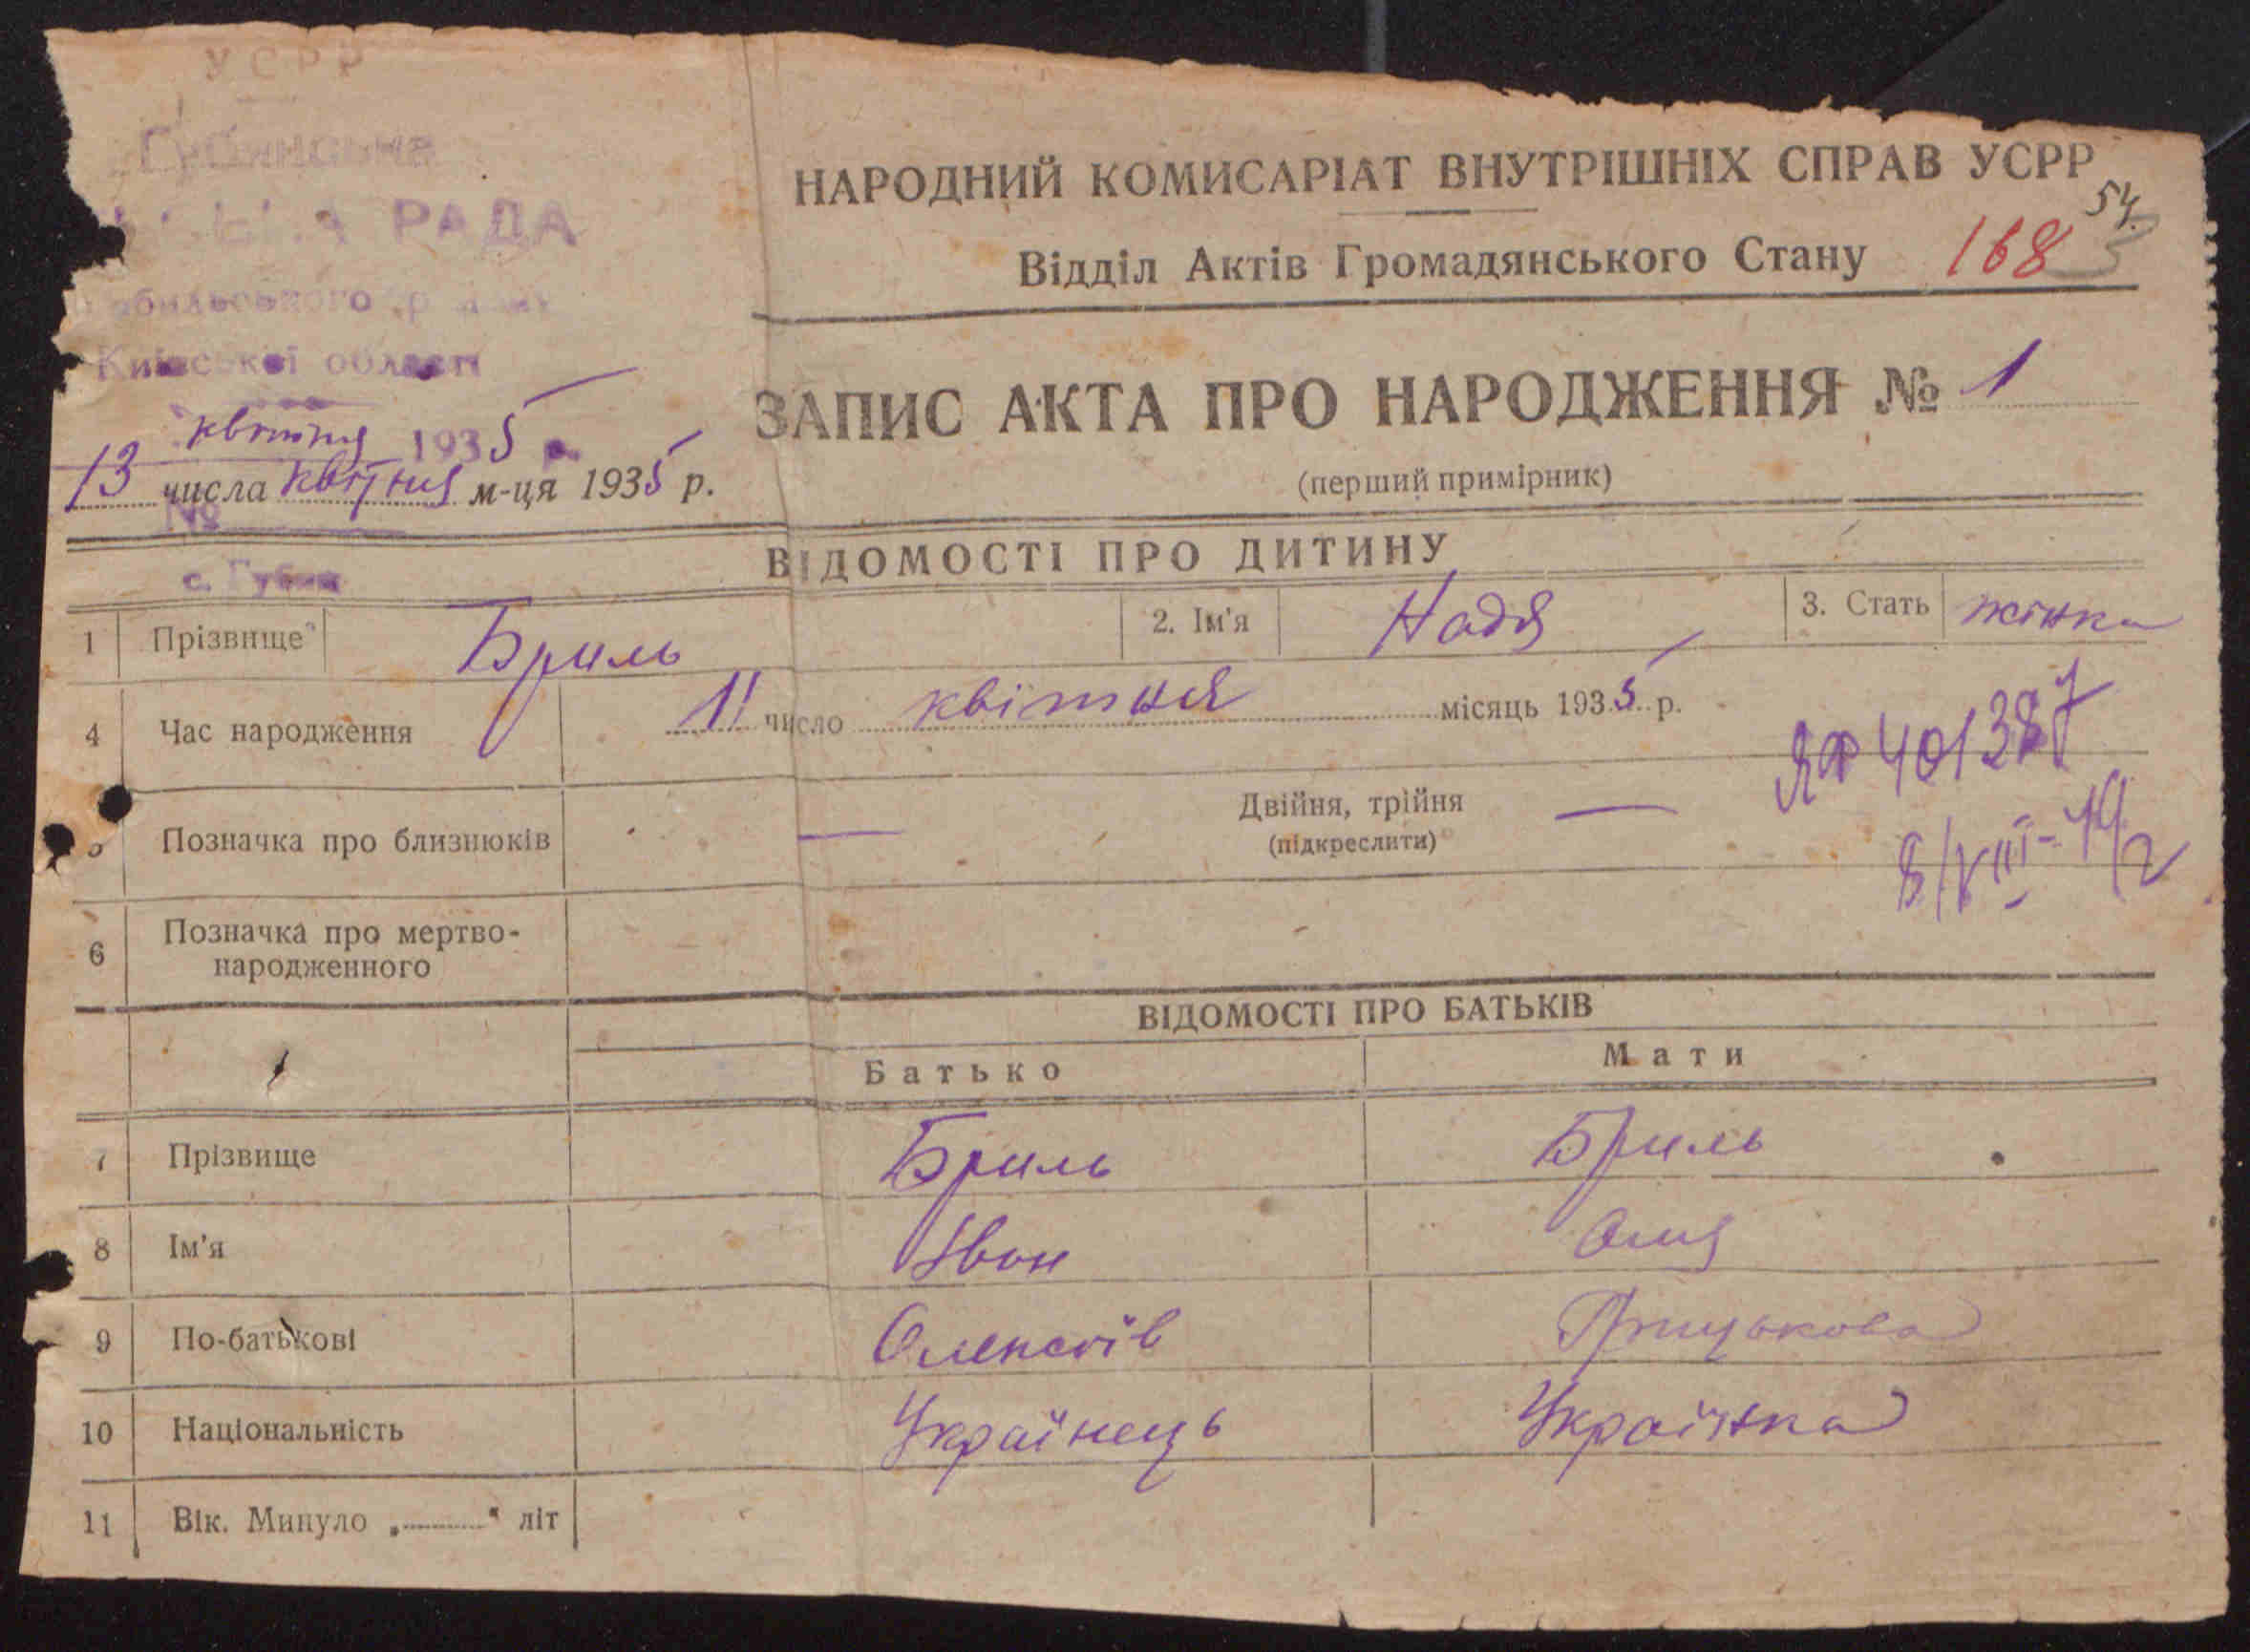 УСРР
Губинська
РАДА
Київської області
квітня 1935 р.
13 числа квітня м-ця 1935 р.
№
с. Губин
НАРОДНИЙ КОМИСАРІАТ ВНУТРІШНІХ СПРАВ УСРР
54.
Відділ Актів Громадянського Стану 168
ЗАПИС АКТА ПРО НАРОДЖЕННЯ № 1
(перший примірник)
ВІДОМОСТІ ПРО ДИТИНУ
1 Прізвище Бриль 2. Ім'я Надя 3. Стать жінка
4 Час народження 11 число квітня місяць 1935 р.
ЯФ 401387
5 Позначка про близнюків — Двійня, трійня —
(підкреслити)
8/VIII-
6 Позначка про мертво-
народженного
ВІДОМОСТІ ПРО БАТЬКІВ
Батько Мати
7 Прізвище Бриль Бриль
8 Ім'я Іван
9 По-батькові Олексіїв Грицькова
10 Національність Українець Українка
11 Вік. Минуло „ “ літ